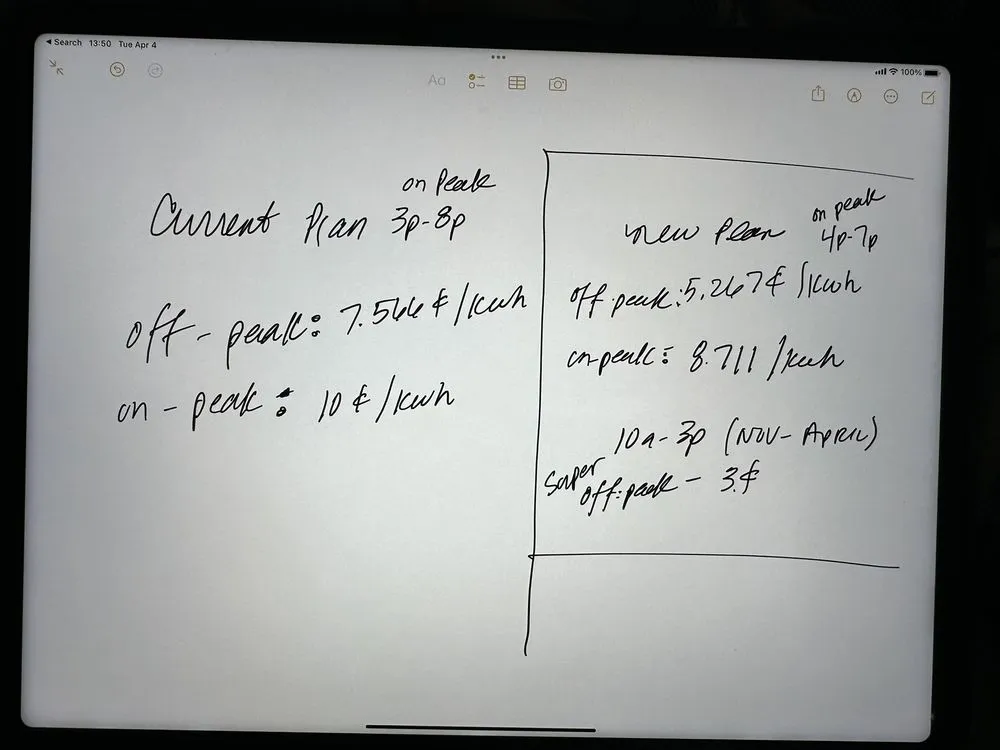 ◂ Search 13:50 Tue Apr 4
100%
Aa
on Peak
Current Plan 3p-8p
off-peak: 7.566¢/kwh
on-peak: 10¢/kwh
on peak
new Plan 4p-7p
off peak: 5.267¢/kwh
on-peak: 8.711/kwh
10a-3p (NOV-APRIL)
Super
off-peak - 3.¢